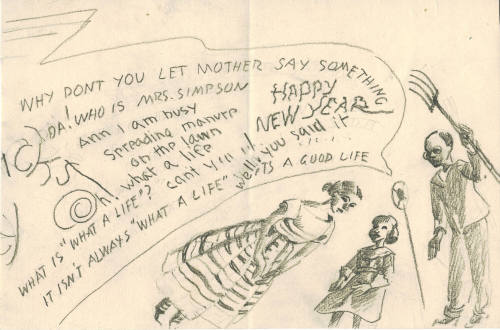 WHY DONT YOU LET MOTHER SAY SOMETHING
DA! WHO IS MRS. SIMPSON
Ann I am busy
spreading manure
on the lawn
Oh, what a life
HAPPY
NEW YEAR
well, you said it
WHAT IS "WHAT A LIFE"? can't
IT ISN'T ALWAYS "WHAT A LIFE" ITS A GOOD LIFE